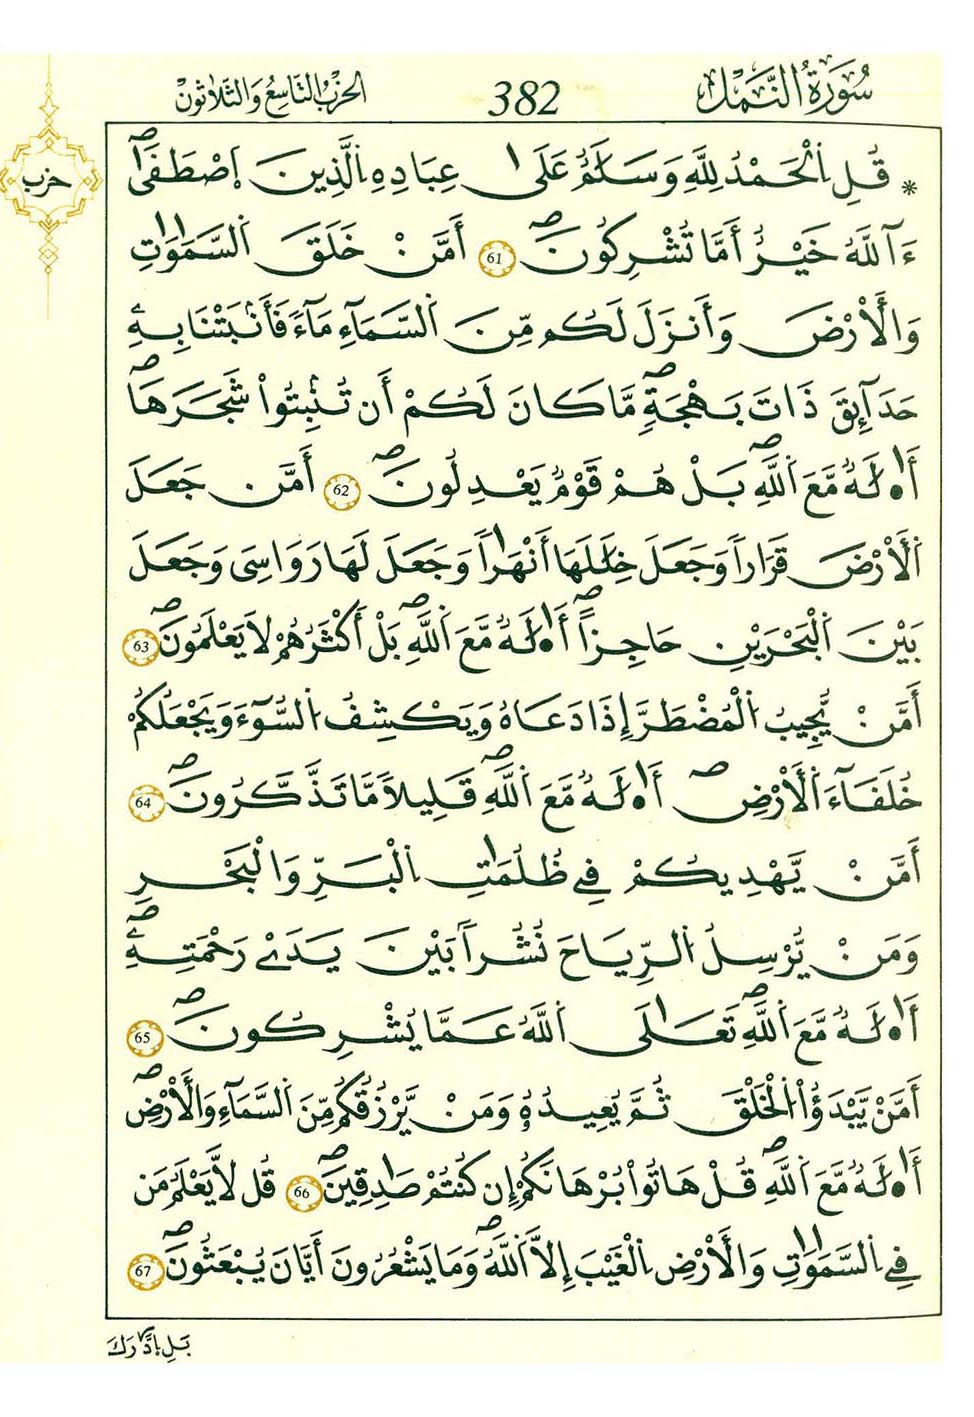 سُورَةُ النَّمْلِ 382 الحِزْبُ التَّاسِعُ وَالثَّلَاثُونَ
حزب
* قُلِ اِ۬لْحَمْدُ لِلهِ وَسَلَٰمٌ عَلَىٰ عِبَادِهِ اِ۬لذِينَ اَ۪صْطَف۪ىٰٓۖ
ءَآللَّهُ خَيْرٌ اَمَّا تُشْرِكُونَۖ 61 أَمَّنْ خَلَقَ اَ۬لسَّمَٰوَٰتِ
وَالَارْضَ وَأَنزَلَ لَكُم مِّنَ اَ۬لسَّمَآءِ مَآءً فَأَنۢبَتْنَا بِهِۦ
حَدَآئِقَ ذَاتَ بَهْجَةٍۖ مَّا كَانَ لَكُمْ أَن تُنۢبِتُواْ شَجَرَهَاۖ
أَ۟لَٰهٌ مَّعَ اَ۬للَّهِۖ بَلْ هُمْ قَوْمٌ يَعْدِلُونَۖ 62 أَمَّن جَعَلَ
اَ۬لَارْضَ قَرَاراً وَجَعَلَ خِلَٰلَهَا أَنْهَٰراً وَجَعَلَ لَهَا رَوَاسِىَ وَجَعَلَ
بَيْنَ اَ۬لْبَحْرَيْنِ حَاجِزاًۖ أَ۟لَٰهٌ مَّعَ اَ۬للَّهِۖ بَلَ اَكْثَرُهُمْ لَا يَعْلَمُونَۖ 63
أَمَّنْ يُّجِيبُ اُ۬لْمُضْطَرَّ إِذَا دَعَاهُ وَيَكْشِفُ اُ۬لسُّوٓءَ وَيَجْعَلُكُمْ
خُلَفَآءَ اَ۬لَارْضِۖ أَ۟لَٰهٌ مَّعَ اَ۬للَّهِۖ قَلِيلاً مَّا تَذَّكَّرُونَۖ 64
أَمَّنْ يَّهْدِيكُمْ فِے ظُلُمَٰتِ اِ۬لْبَرِّ وَالْبَحْرِ
وَمَنْ يُّرْسِلُ اُ۬لرِّيَاحَ نُشُراً بَيْنَ يَدَےْ رَحْمَتِهِۦٓۖ
أَ۟لَٰهٌ مَّعَ اَ۬للَّهِۖ تَعَٰلَى اَ۬للَّهُ عَمَّا يُشْرِكُونَۖ 65
أَمَّنْ يَّبْدَؤُاْ اُ۬لْخَلْقَ ثُمَّ يُعِيدُهُۥ وَمَنْ يَّرْزُقُكُم مِّنَ اَ۬لسَّمَآءِ وَالَارْضِۖ
أَ۟لَٰهٌ مَّعَ اَ۬للَّهِۖ قُلْ هَاتُواْ بُرْهَانَكُمُ إِن كُنتُمْ صَٰدِقِينَۖ 66 قُل لَّا يَعْلَمُ مَن
فِے اِ۬لسَّمَٰوَٰتِ وَالَارْضِ اِ۬لْغَيْبَ إِلَّا اَ۬للَّهُۖ وَمَا يَشْعُرُونَ أَيَّانَ يُبْعَثُونَۖ 67
بَلِ اِ۪دَّٰرَكَ